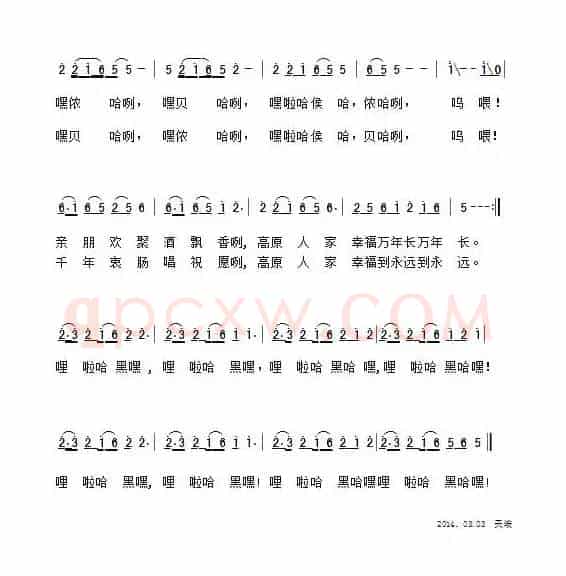 2 2 1 6 5 5 — | 5 2 1 6 5 2 — | 2 2 1 6 5 5 | 6 5 5 — — | 1 \ — — 1 \ 0
嘿侬 哈咧， 嘿贝 哈咧， 嘿啦哈侯 哈，侬哈咧， 呜 喂！
嘿贝 哈咧， 嘿侬 哈咧， 嘿啦哈侯 哈，贝哈咧， 呜 喂！
6·1 6 5 2 5 6 | 6·1 6 5 1 2· | 2 2 1 6 5 6· | 2 5 6 1 2 1 6 | 5 — — — :||
亲 朋 欢 聚 酒 飘 香咧，高原 人 家 幸福万年长万年 长。
千 年 衷 肠 唱 祝 愿咧，高原 人 家 幸福到永远到永 远。
qpcxw.COM
2·3 2 1 6 2 2 | 2·3 2 1 6 1 1· | 2·3 2 1 6 2 2· | 2·3 2 1 6 1 2 1 |
哩 啦哈 黑嘿，哩 啦哈 黑嘿，哩 啦哈 黑哈 嘿，哩 啦哈 黑哈嘿！
2·3 2 1 6 2 2· | 2·3 2 1 6 1 1· | 2·3 2 1 6 1 2 2· | 2·3 2 1 6 5 6 5 ||
哩 啦哈 黑嘿，哩 啦哈 黑嘿！哩 啦哈 黑哈嘿哩 啦哈 黑哈嘿！